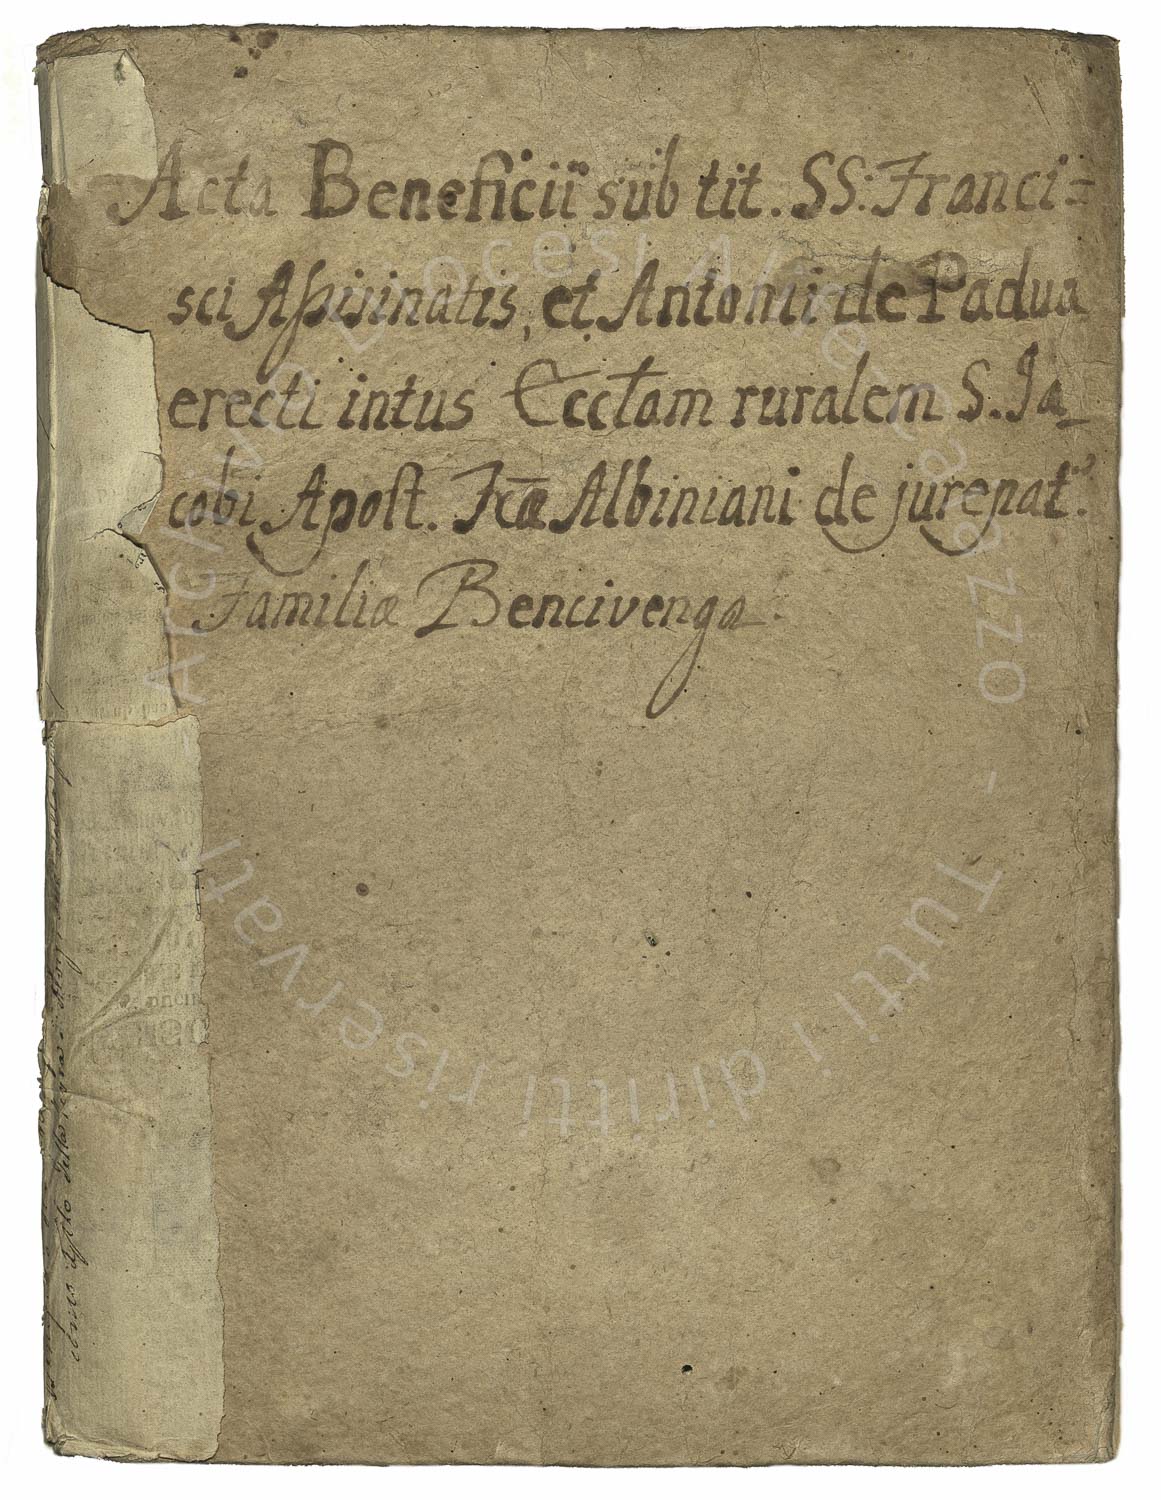 Acta Beneficii sub tit. SS: Franci=
sci Assisinatis, et Antonii de Padua
erecti intus Eccłam ruralem S. Ja_
cobi Apost. Træ Albiniani de jurepat.ᵘ
Familiæ Bencivenga.
- Archivio Diocesi Alife-Caiazzo - Tutti i diritti riservati
della